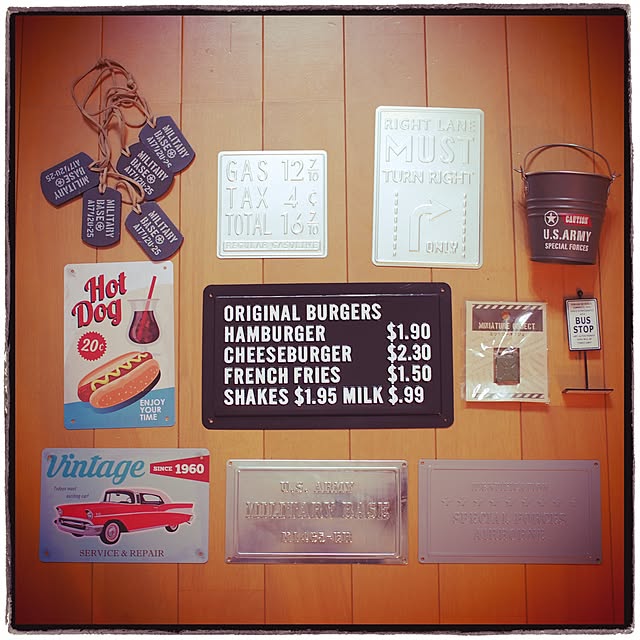 MILITARY
BASE
A177/20-25
MILITARY
BASE
A177/20-25
MILITARY
BASE
A177/20-25
MILITARY
BASE
A177/20-25
MILITARY
BASE
A177/20-25
GAS 12 7/10
TAX 4 ¢
TOTAL 16 7/10
REGULAR GASOLINE
RIGHT LANE
MUST
TURN RIGHT
ONLY
CAUTION
U.S.ARMY
SPECIAL FORCES
Hot
Dog
20¢
ENJOY
YOUR
TIME
ORIGINAL BURGERS
HAMBURGER $1.90
CHEESEBURGER $2.30
FRENCH FRIES $1.50
SHAKES $1.95 MILK $.99
MINIATURE OBJECT
BUS
STOP
Vintage
SINCE 1960
SERVICE & REPAIR
U.S. ARMY
MILITARY BASE
SPECIAL FORCES
AIRBORNE